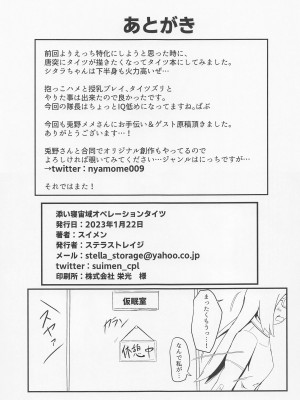 あとがき
前回よりえっち特化にしようと思った時に、
唐突にタイツが描きたくなってタイツ本にしてみました。
シタラちゃんは下半身も火力高いぜ…
抱っこハメと授乳プレイ、タイツズリと
やりた事は出来たので良かったです。
今回の隊長はちょっとIQ低めになってますね。ばぶ
今回も兎野メメさんにお手伝い&ゲスト原稿頂きました。
ありがとうございます…！
兎野さんと合同でオリジナル創作もやってるので
よろしければ覗いてみてください…ジャンルはにっちですが…
→twitter：nyamome009
それではまた！
添い寝宙域オペレーションタイツ
発行日：2023年1月22日
著者：スイメン
発行者：ステラストレイジ
メール：stella_storage@yahoo.co.jp
twitter：suimen_cpl
印刷所：株式会社 栄光　様
仮眠室
カラン
休憩中
スヤァ
まったくもうっ…！
なんで私が…